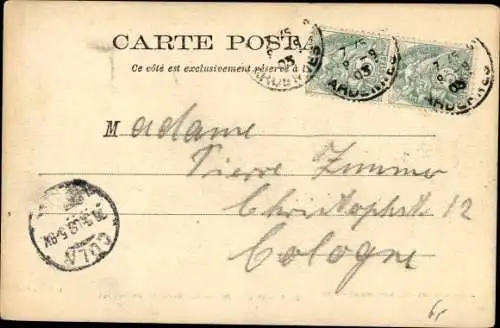 CARTE POSTA
Ce côté est exclusivement réservé à
ARDENNES
03
ARDENNES
03
ARDENNES
03
Madame
Pierre Zimmer
Christophst. 12
Cologne
CÖLN